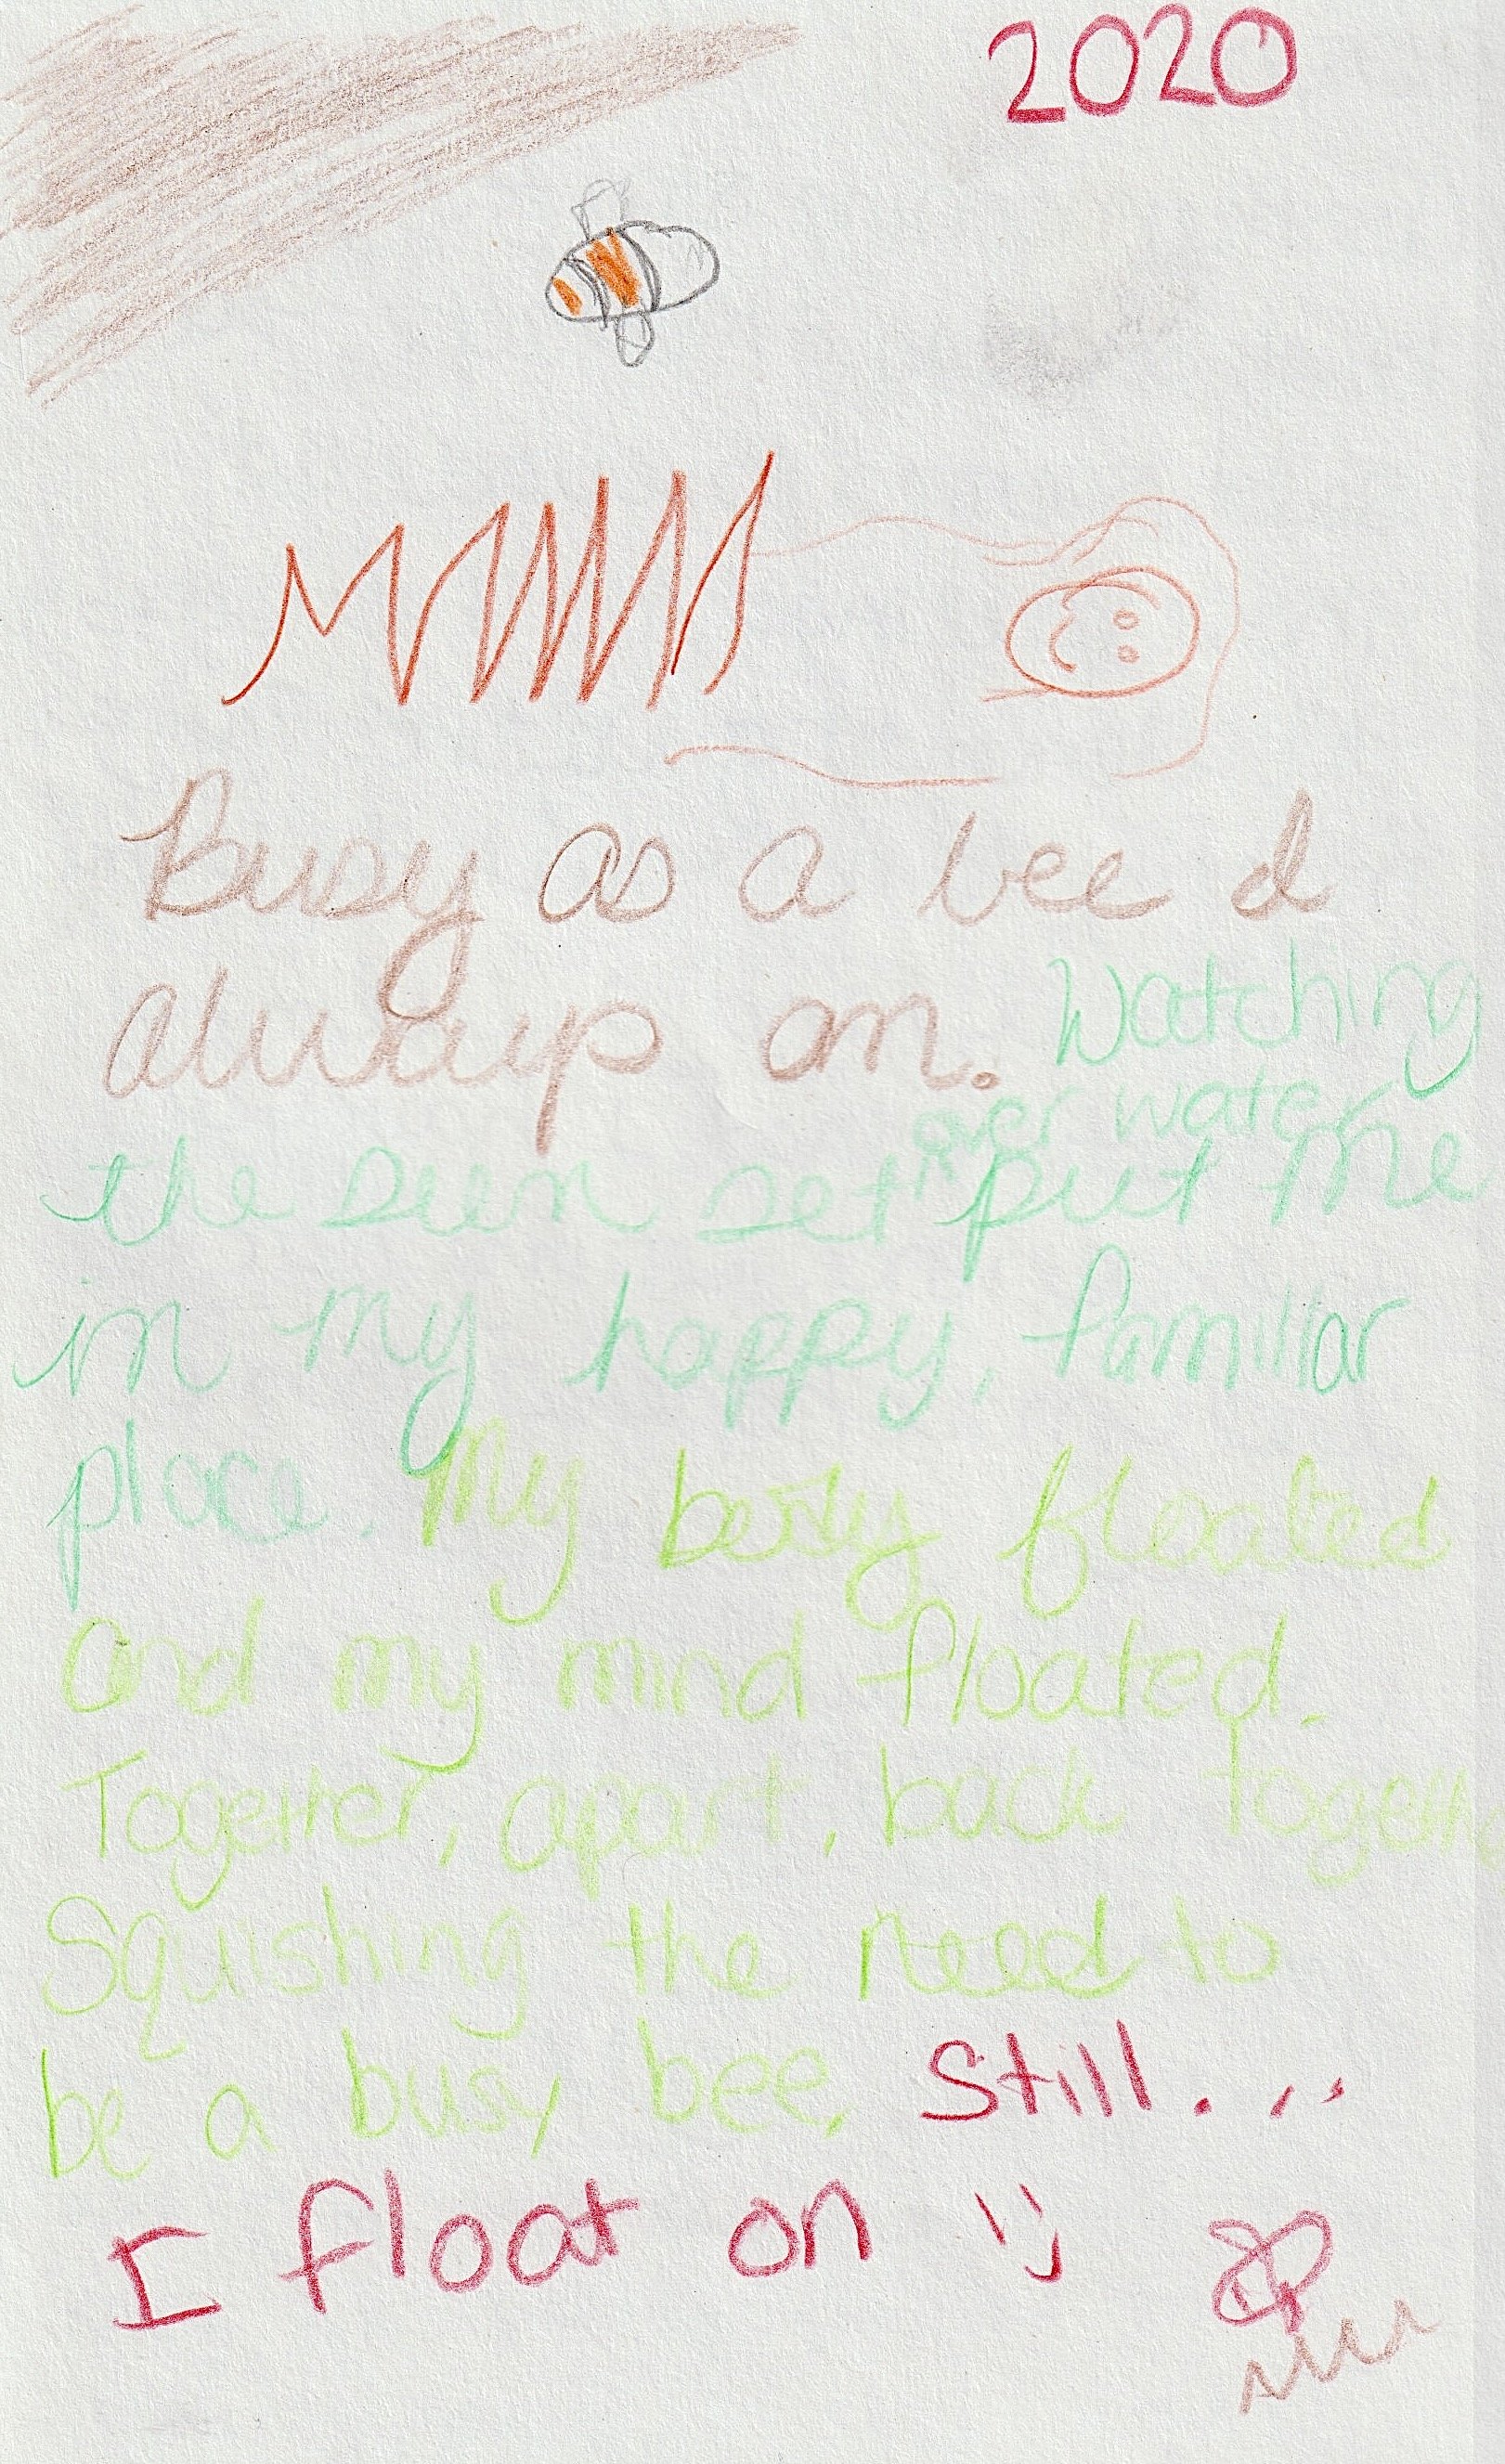 2020
Busy as a bee d
always on. Watching
the sun set over water put me
in my happy, familiar
place. My body floated
and my mind floated.
Together, apart, back togeth
Squishing the need to
be a busy bee, Still...
I float on :)